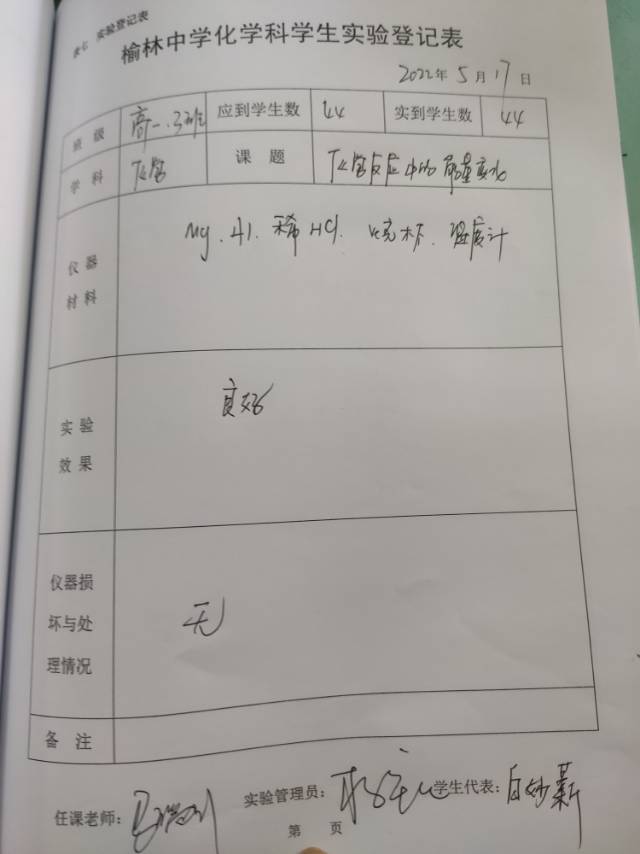 表七 实验登记表
榆林中学化学科学生实验登记表
2022年5月17日
班级 高一.3班 应到学生数 44 实到学生数 44
学科 化学 课题 化学反应中的能量变化
仪器材料 Mg.Al.稀HCl.烧杯.温度计
实验效果 良好
仪器损坏与处理情况 无
备注
任课老师: 实验管理员: 学生代表:白妙
第 页